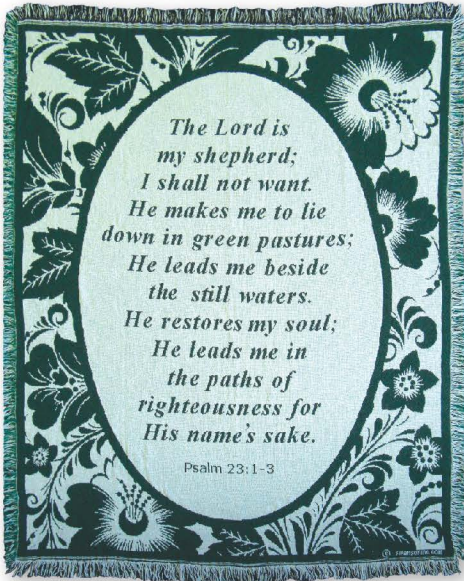 The Lord is
my shepherd;
I shall not want.
He makes me to lie
down in green pastures;
He leads me beside
the still waters.
He restores my soul;
He leads me in
the paths of
righteousness for
His name's sake.
Psalm 23:1-3
©